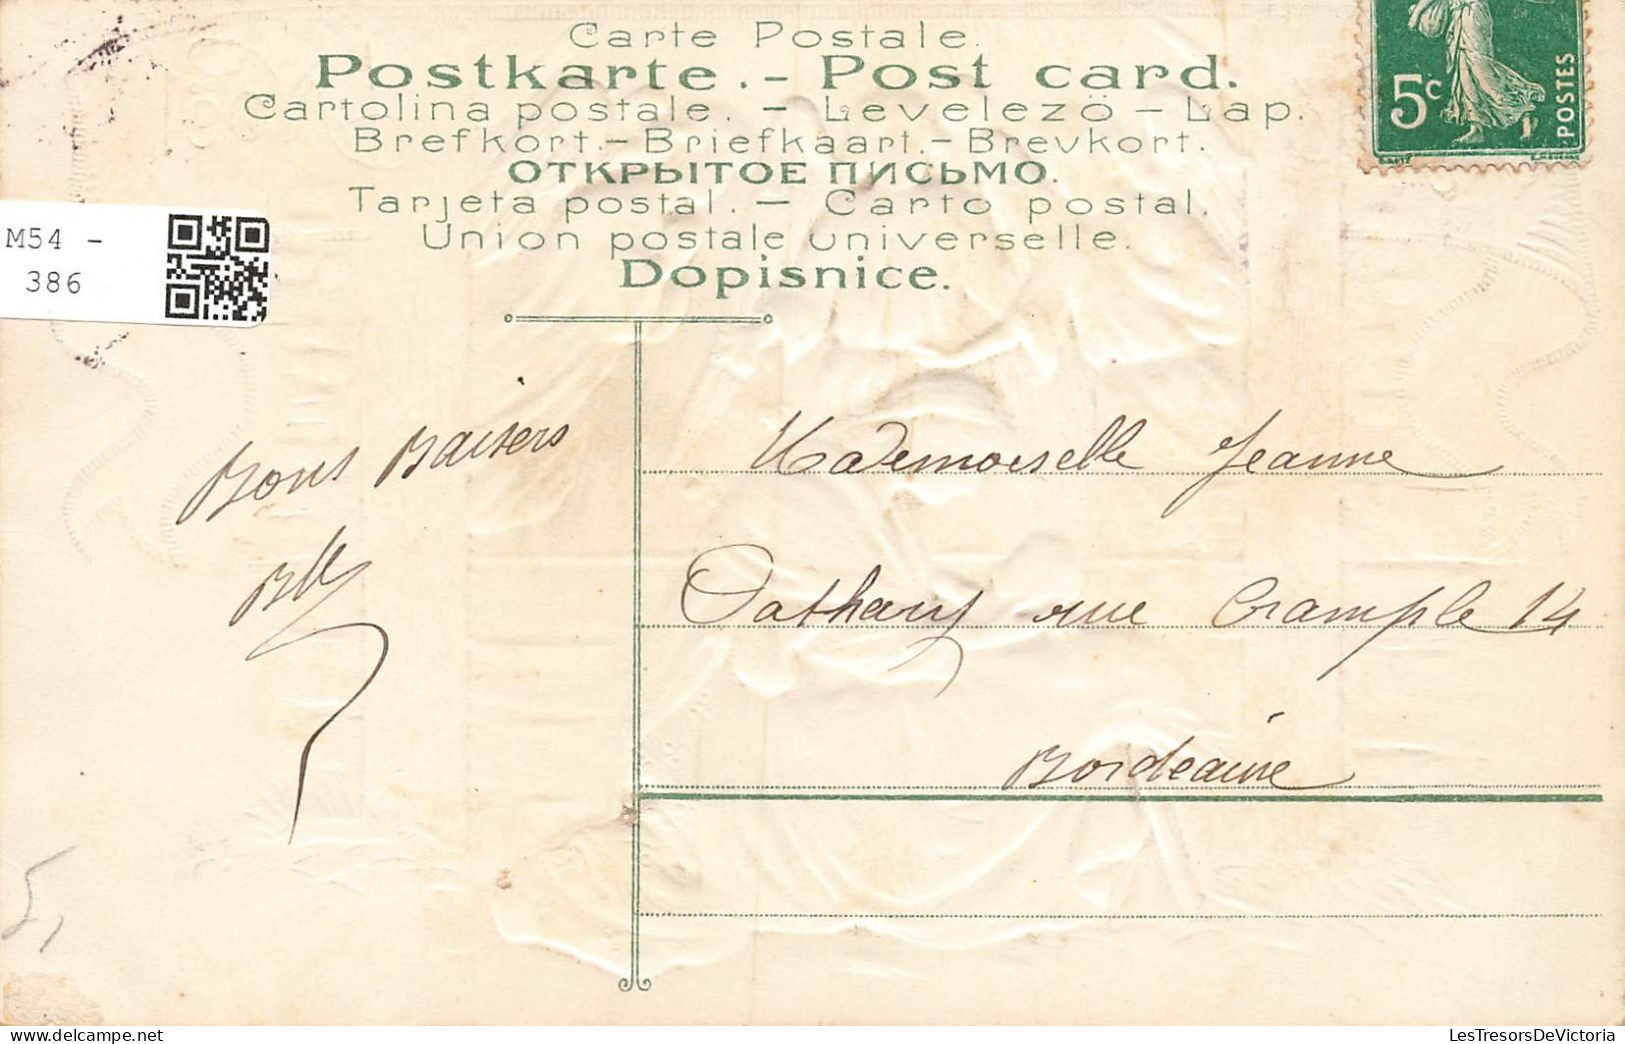 Carte Postale.
Postkarte.- Post card.
Cartolina postale. - Levelezö - Lap.
Brefkort.- Briefkaart.- Brevkort.
ОТКРЫТОЕ ПИСЬМО.
Tarjeta postal. - Carto postal.
Union postale universelle.
Dopisnice.
5c
POSTES
M54 -
386
Bons Baisers
Mademoiselle Jeanne
rue Crample 14
Bordeaux
5,
LesTresorsDeVictoria